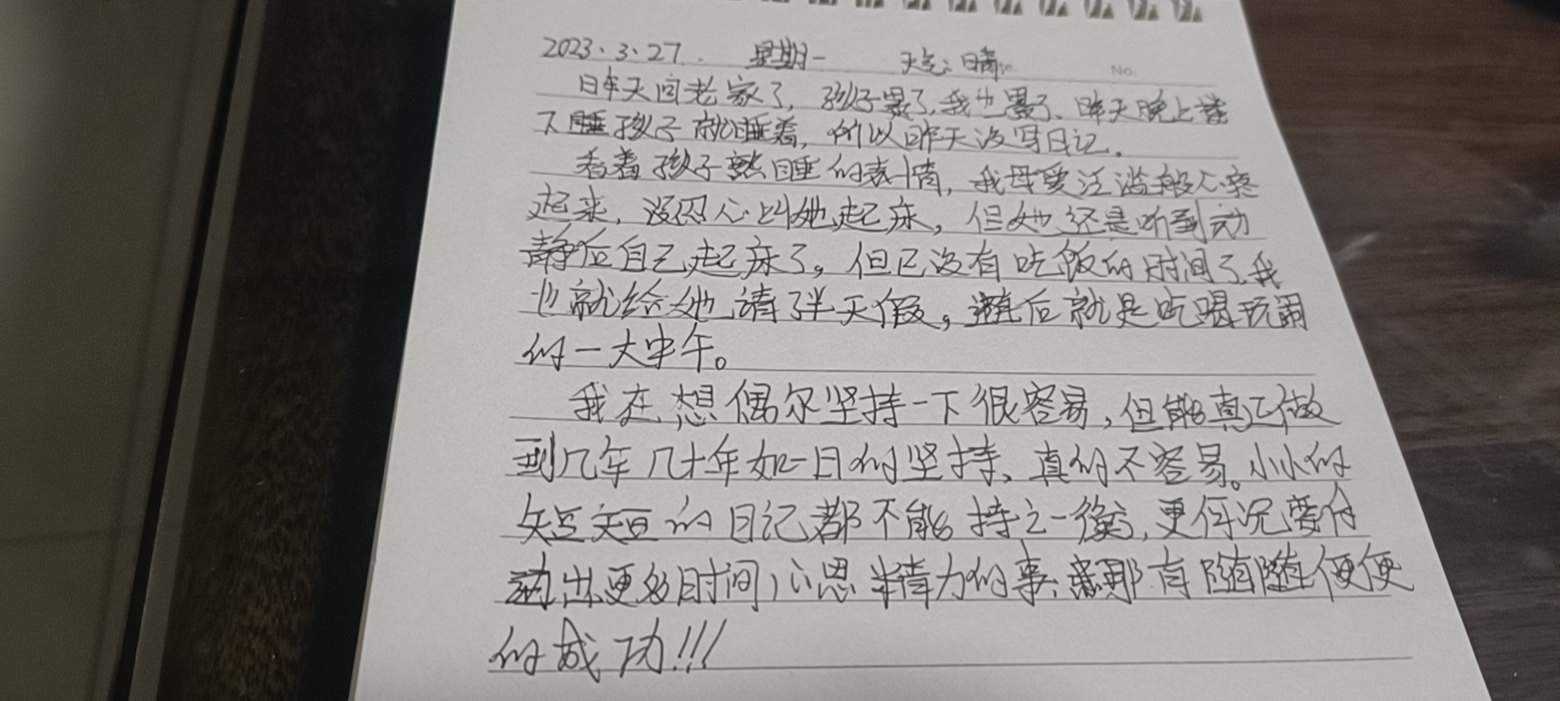 2023.3.27. 星期一 天气:晴 No.
昨天回老家了,孩子累了,我也累了,昨天晚上搂
下睡孩子就睡着,所以昨天没写日记.
看着孩子熟睡的表情,我母爱泛滥般心疼
起来,没忍心叫她起床,但她还是听到动
静后自己起床了,但已没有吃饭的时间了,我
也就给她请了半天假。随后就是吃喝玩闹
的一大中午。
我在想偶尔坚持一下很容易,但能真正做
到几年几十年如一日的坚持、真的不容易。小小的
短短的日记都不能持之一衡,更何况要付
出更多时间,心思精力的事,那有随随便便
的成功!!!